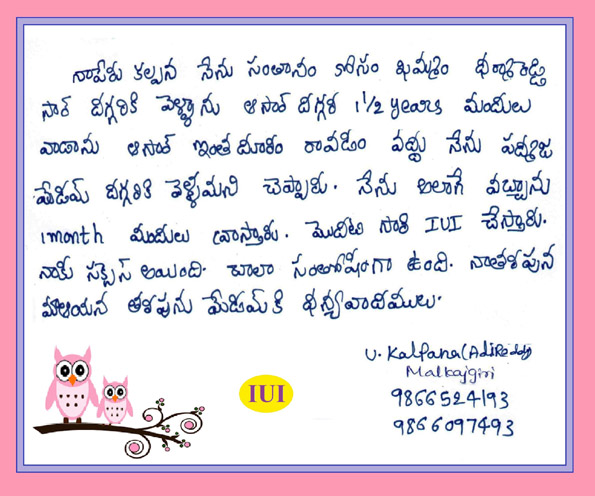 నాపేరు కల్పన నేను సంతానం కోసం ఖమ్మం
సార్ దగ్గరికి వెళ్ళాను ఆ సార్ దగ్గర 1½ years మందులు
వాడాను ఆ సార్ ఇంత దూరం రావడం వద్దు నేను పద్మజ
మేడమ్ దగ్గరికి వెళ్ళమని చెప్పారు. నేను అలాగే వచ్చాను
1month మందులు వ్రాస్తారు. మొదటి సారి IUI చేస్తారు.
నాకు సక్సెస్ అయింది. చాలా సంతోషంగా ఉంది. నాతరపున
మాఆయన తరపును మేడమ్ కి ధన్యవాదములు.
U. Kalpana (AdiReddy)
Malkajgiri
9866524193
9866097493
IUI